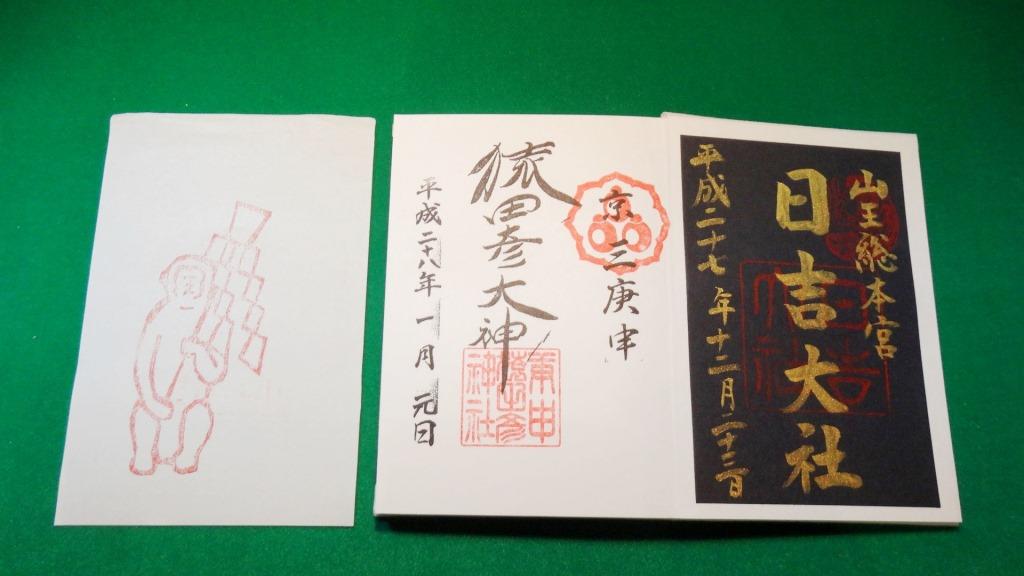 山王総本宮
日吉大社
平成二十七年十二月二十三日
京三庚申
猿田彦大神
平成二十八年一月元日
庚申
猿田彦
神社
日吉